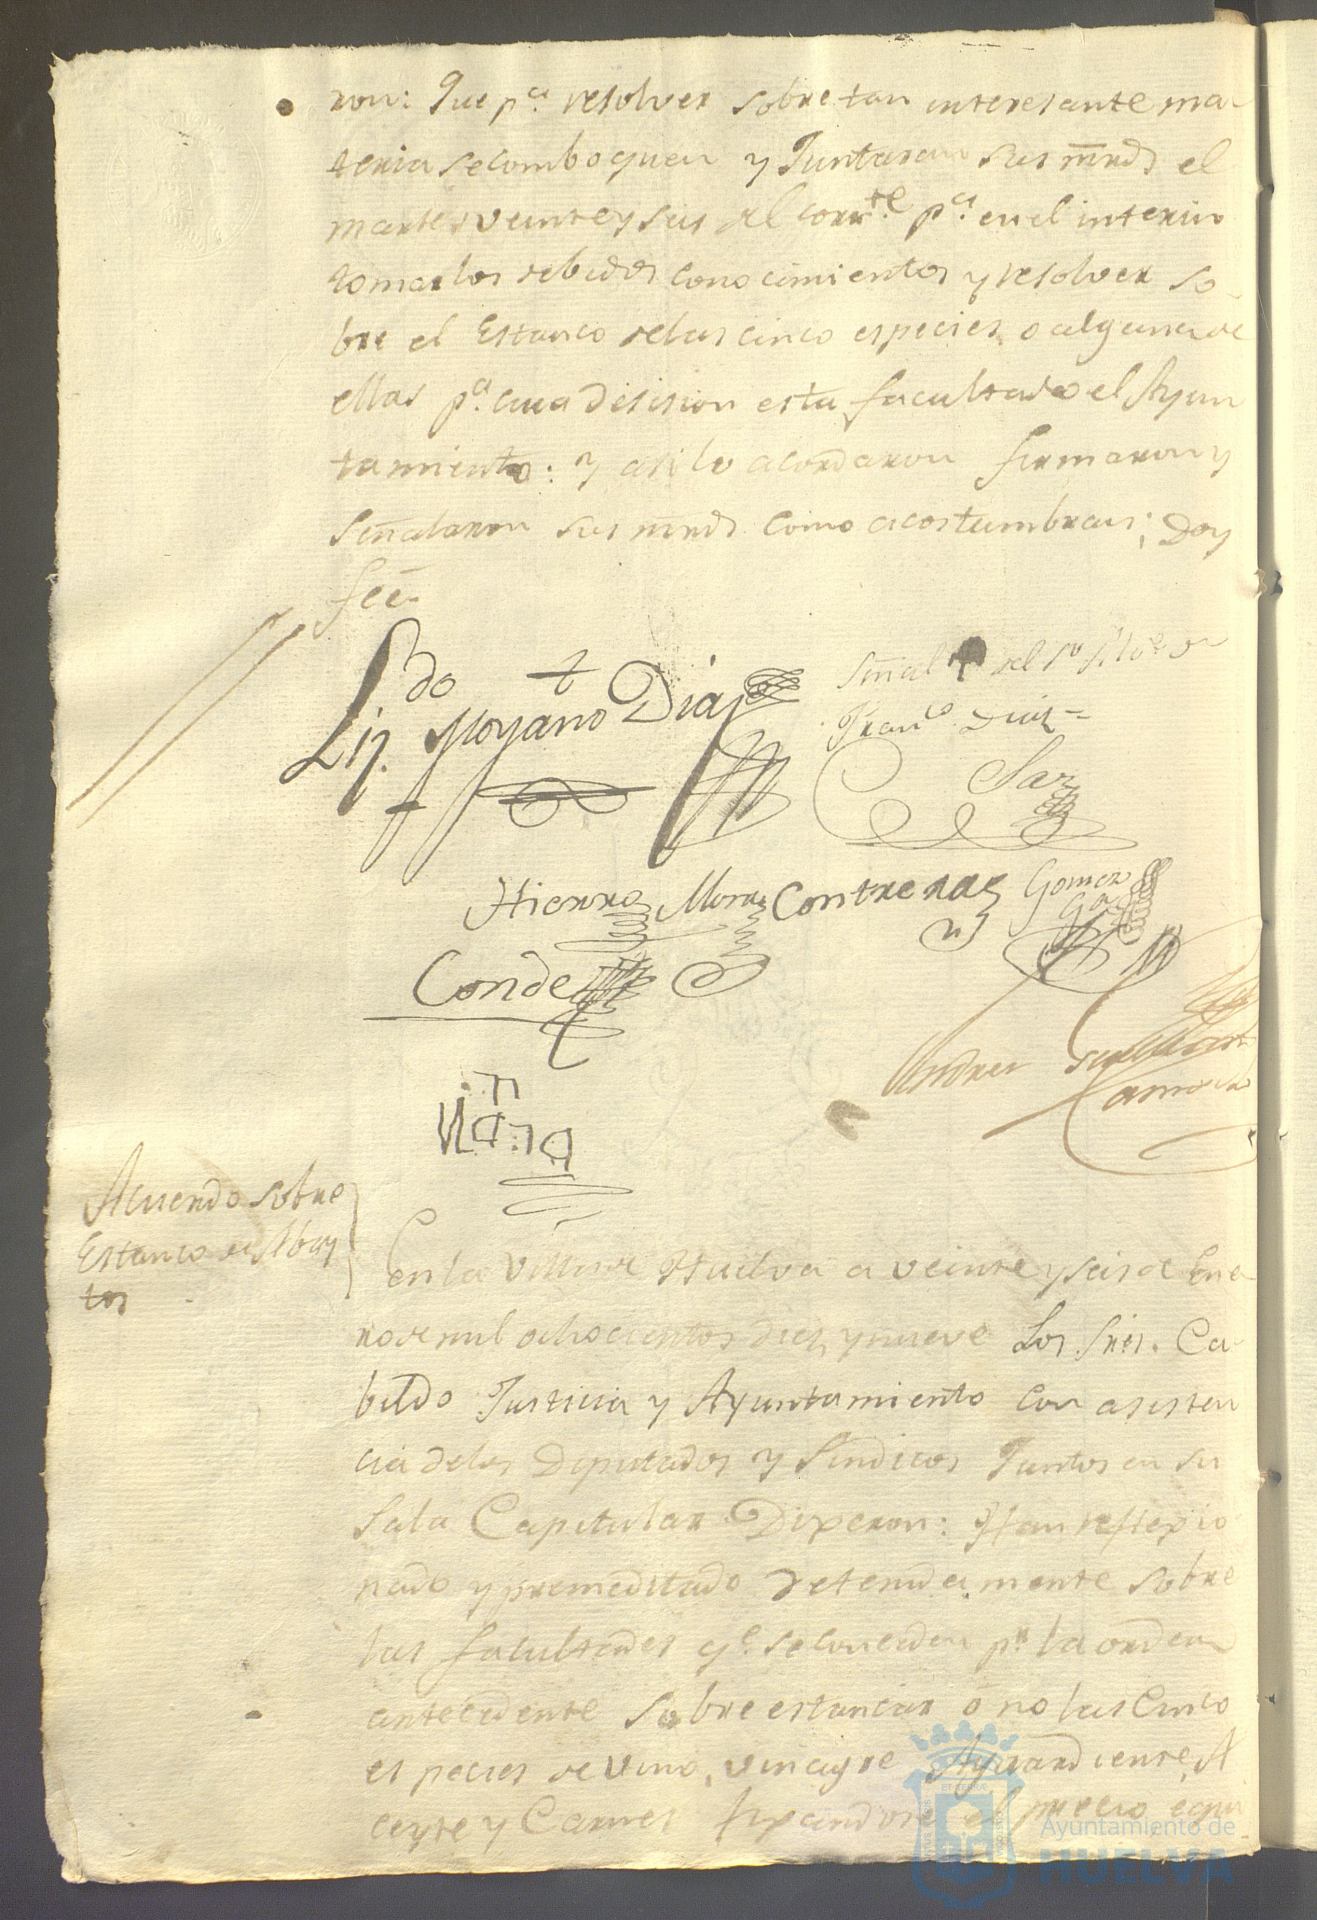 ron: Que pa. resolver sobre tan interesante ma-
teria se comboquen y Juntaran sus mrds el
martes veinte y seis del corrte. pa. en el interin
tomar los debidos conocimientos y resolver so-
bre el Estanco de las cinco especies o alguna de
ellas pa. cua desision esta facultado el Ayun
tamiento: y asi lo acordaron firmaron y
señalaron sus mrds como acostumbran; Doy
feé.
Lizdo. Moyano Diaz
Señal + del sr
Franco. Diaz =
Saz
Hierro Mora Contreras Gomez
Conde
Andres
Zamora
Acuerdo sobre
Estanco de Abas
tos
En la Villa de Huelva a veinte y seis de Ene-
ro de mil ochocientos diez y nueve Los Sres. Ca-
bildo Justicia y Ayuntamiento con asisten
cia de los Diputados y Sindicos Juntos en su
Sala Capitular Dixeron: Han reflexio
nado y premeditado detenidamente sobre
las facultades qe. se conceden pr. la orden
antecedente sobre estancar o no las Cinco
especies de Vino, vinagre Aguardiente, A
ceyte y Carnes fixandose el precio equi
Ayuntamiento de
HUELVA